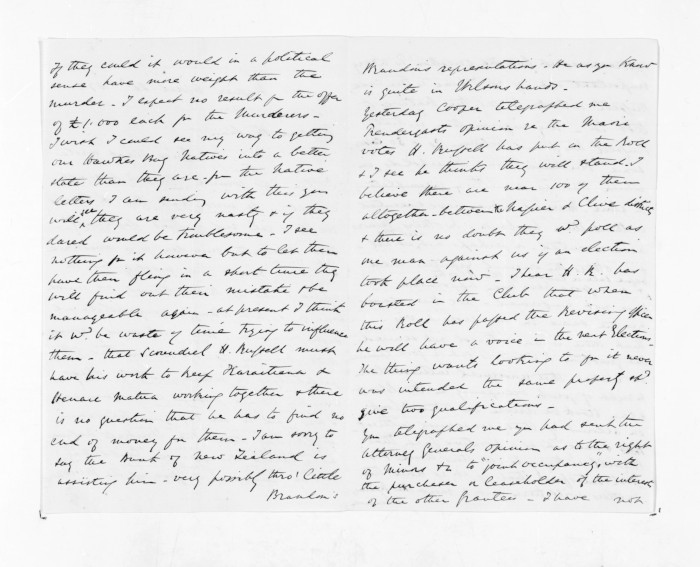 If they could it would in a political
sense have more weight than the
murder. I expect no result fr the offer
of £1.000 each for the Murderers -
I wish I could see my way to getting
our Hawkes Bay Natives into a better
state than they are - fm the Native
letters I am sending with this you
will see they are very nasty & if they
dared would be troublesome - I see
nothing for it however but to let them
have their fling in a short time they
will find out their mistake & be
manageable again - at present I think
it wd. be waste of time trying to influence
them - that Scoundrel H. Russell must
have his work to keep Karaitiana &
Henare Matua working together & there
is no question that he has to find no
end of money for them - I am sorry to
say the Bank of New Zealand is
assisting him - very possibly thro' Little
Brandon's
Brandon's representations - He as you know
is quite in Wilsons hands -
Yesterday Cooper telegraphed me
Prendergasts opinion re the Maori
votes H. Russell has put on the Roll
& I see he thinks they will stand. I
believe there are near 100 of them
altogether - between the Napier & Clive districts
& there is no doubt they wd. poll as
one man against us if an election
took place now - I hear H. R. has
boasted in the Club that when
this Roll has passed the Revising Officer
he will have a voice in the next Elections.
The thing wants looking to for it never
was intended the same property shd.
give two qualifications -
You telegraphed me you had sent the
Attorney Generals opinion as to the right
of Minors &c to "joint occupancy" with
the purchaser or leaseholder of the interest
of the other Grantees - I have not